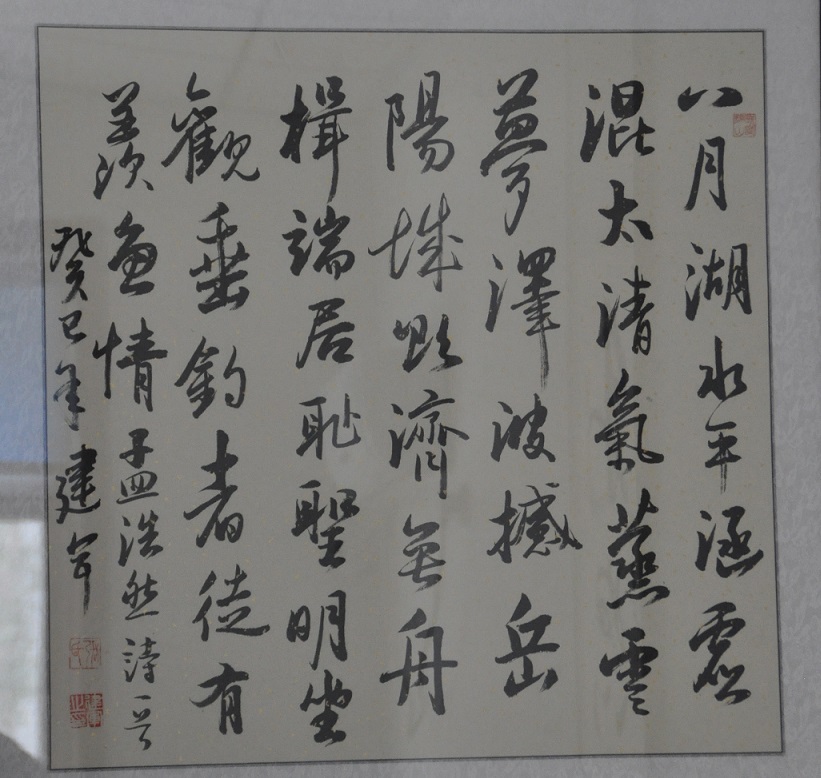 八月湖水平涵虛
混太清氣蒸雲
夢澤波撼岳
陽城欲濟無舟
楫端居耻聖明坐
觀垂釣者徒有
羨魚情 孟浩然詩一首
癸巳年建军